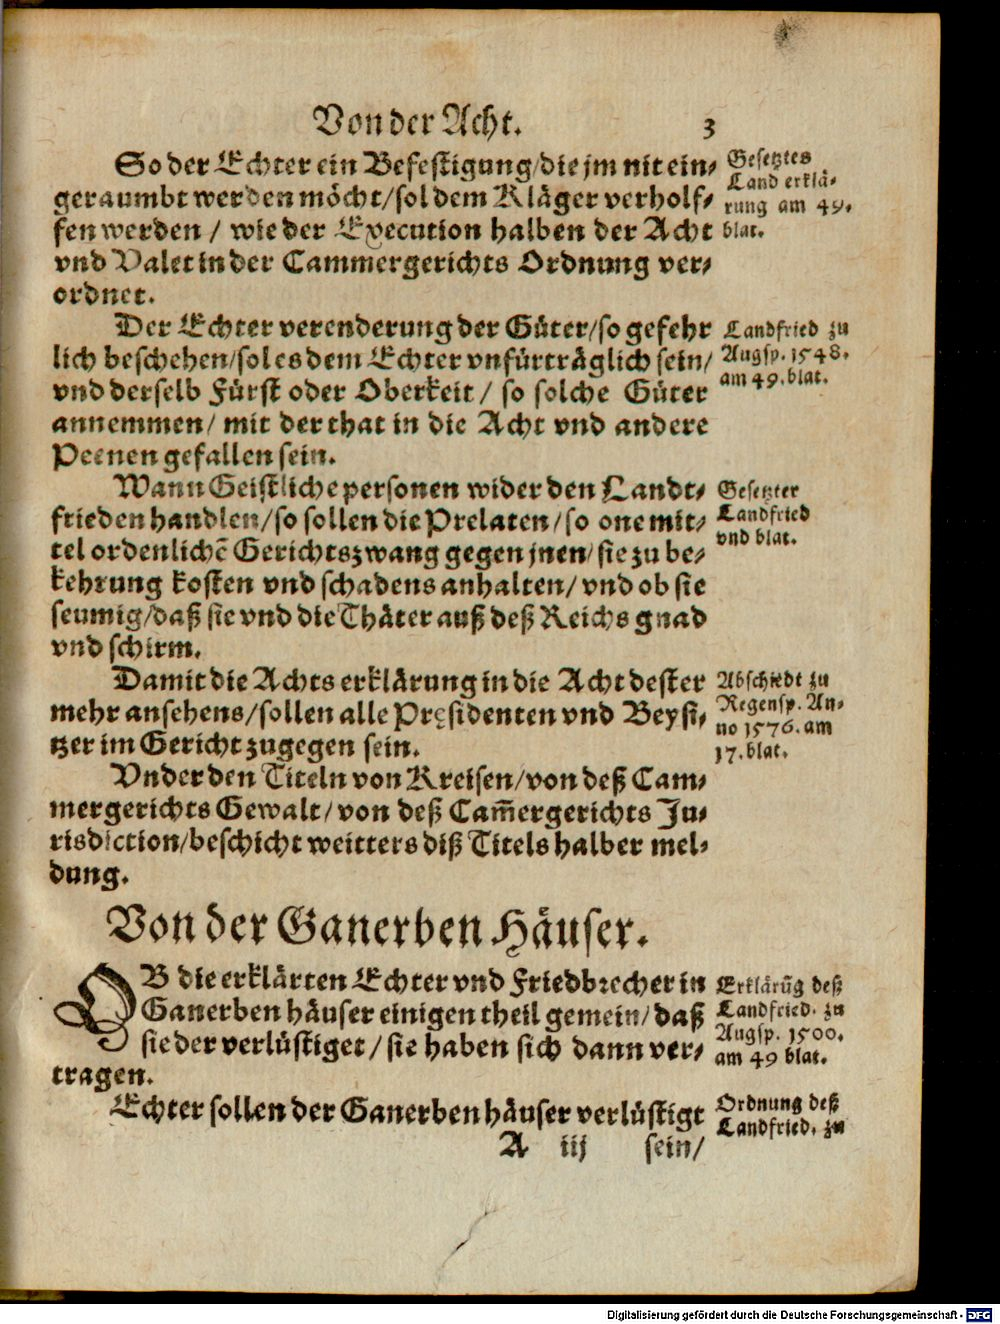 Von der Acht. 3
So der Echter ein Befestigung/die jm nit ein-
geraumbt werden möcht/sol dem Kläger verholf-
fen werden / wie der Execution halben der Acht
vnd Valet in der Cammergerichts Ordnung ver-
ordnet.
Gesetztes
Land erklä-
rung am 49.
blat.
Der Echter verenderung der Güter/so gefehr
lich beschehen/sol es dem Echter vnfürträglich sein/
vnd derselb Fürst oder Oberkeit / so solche Güter
annemmen/ mit der that in die Acht vnd andere
Peenen gefallen sein.
Landfried zu
Augsp. 1548.
am 49. blat.
Wann Geistliche personen wider den Landt-
frieden handlen/so sollen die Prelaten/so one mit-
tel ordenlichē Gerichtszwang gegen jnen/ sie zu be-
kehrung kosten vnd schadens anhalten/ vnd ob sie
seumig/daß sie vnd die Thäter auß deß Reichs gnad
vnd schirm.
Gesetzter
Landfried
vnd blat.
Damit die Achts erklärung in die Acht dester
mehr ansehens/sollen alle Pręsidenten vnd Beysi-
tzer im Gericht zugegen sein.
Abschiedt zu
Regensp. An-
no 1576. am
17. blat.
Vnder den Titeln von Kreisen/von deß Cam-
mergerichts Gewalt/ von deß Cam̃ergerichts Ju-
risdiction/beschicht weitters diß Titels halber mel-
dung.
Von der Ganerben Häuser.
OB die erklärten Echter vnd Friedbrecher in
Ganerben häuser einigen theil gemein/ daß
sie der verlüstiget / sie haben sich dann ver-
tragen.
Erklärūg deß
Landfried. zu
Augsp. 1500.
am 49 blat.
Echter sollen der Ganerben häuser verlüstigt
Ordnung deß
Landfried. zu
A iij sein/
Digitalisierung gefördert durch die Deutsche Forschungsgemeinschaft - DFG